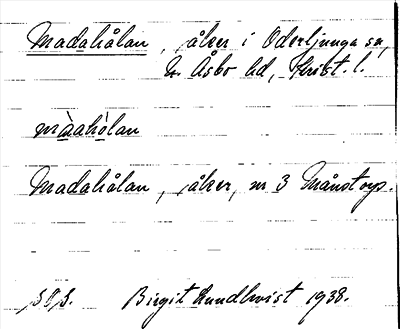 Madahålan, åker i Oderljunga sn,
N. Åsbo hd, Krist. l.
màahòlan
Madahålan, åker, nr 3 Månstorp.
Birgit Lundkvist 1938.